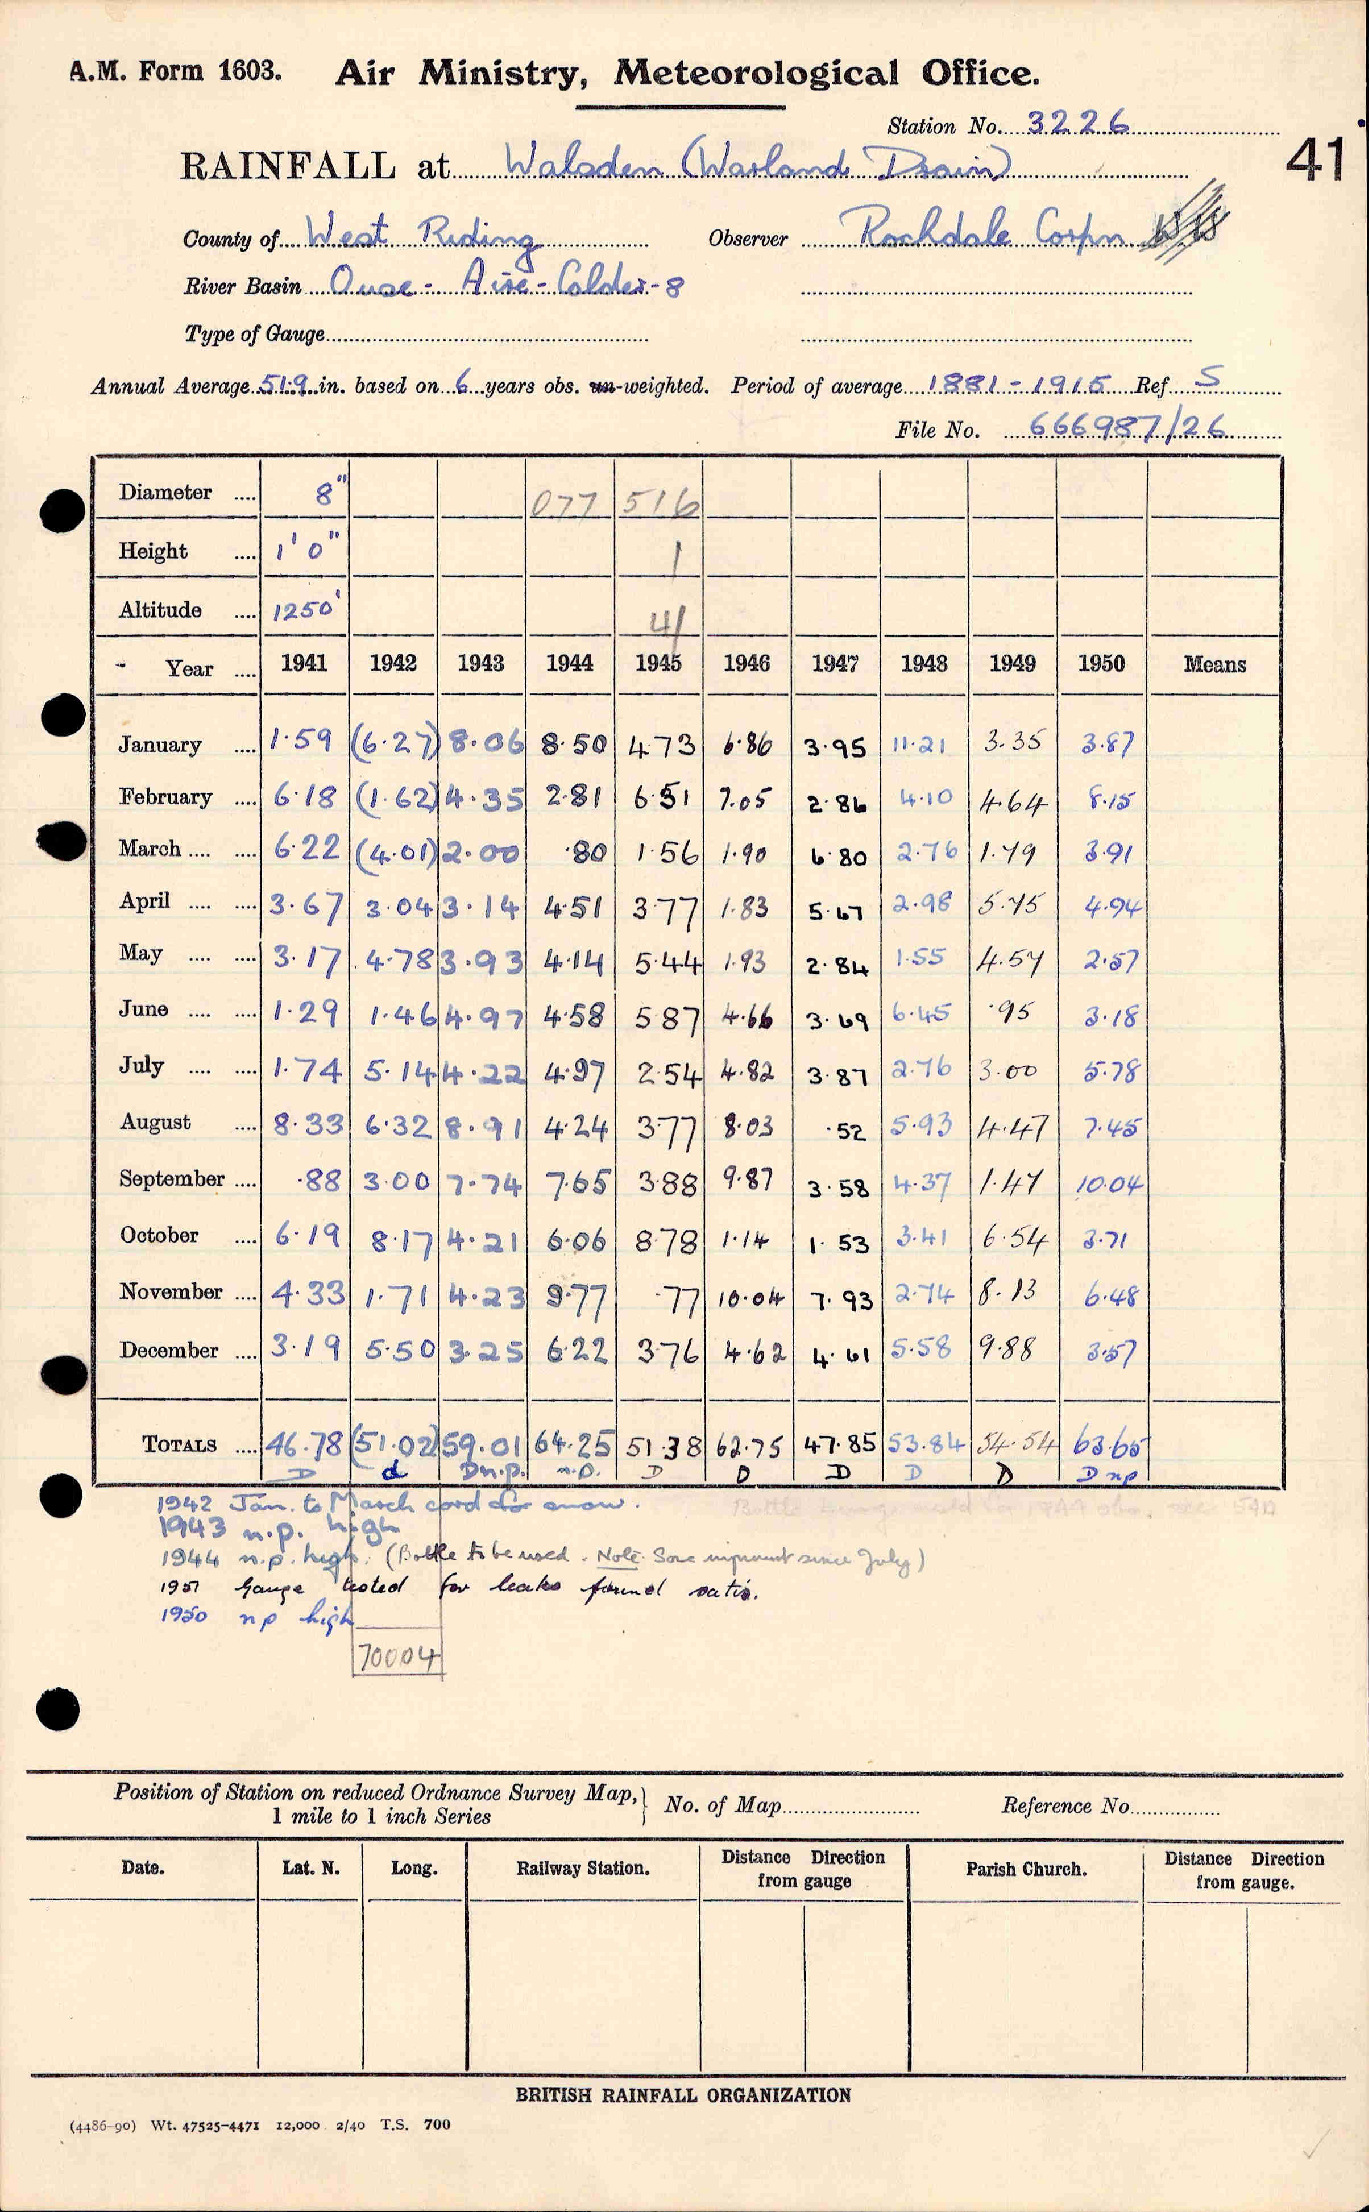 A.M. Form 1603. Air Ministry, Meteorological Office.
Station No. 3226
41
RAINFALL at Walsden (Warland Drain)
County of West Riding Observer Rochdale Corpn
River Basin Ouse - Aire - Calder - 8
Type of Gauge
Annual Average 51.9 in. based on 6 years obs. un-weighted. Period of average 1881 - 1915 Ref S
File No. 666987/26
Diameter .... 8" 077 516
Height .... 1' 0" 1
Altitude .... 1250' 41
Year .... 1941 1942 1943 1944 1945 1946 1947 1948 1949 1950 Means
January .... 1.59 (6.27) 8.06 8.50 4.73 6.86 3.95 11.21 3.35 3.87
February .... 6.18 (1.62) 4.35 2.81 6.51 7.05 2.86 4.10 4.64 8.15
March .... .... 6.22 (4.01) 2.00 .80 1.56 1.90 6.80 2.76 1.79 3.91
April .... .... 3.67 3.04 3.14 4.51 3.77 1.83 5.67 2.98 5.75 4.94
May .... .... 3.17 4.78 3.93 4.14 5.44 1.93 2.84 1.55 4.57 2.57
June .... .... 1.29 1.46 4.97 4.58 5.87 4.66 3.69 6.45 .95 3.18
July .... .... 1.74 5.14 4.22 4.97 2.54 4.82 3.87 2.76 3.00 5.78
August .... 8.33 6.32 8.91 4.24 3.77 8.03 .52 5.93 4.47 7.45
September .... .88 3.00 7.74 7.65 3.88 9.87 3.58 4.37 1.47 10.04
October .... 6.19 8.17 4.21 6.06 8.78 1.14 1.53 3.41 6.54 3.71
November .... 4.33 1.71 4.23 9.77 .77 10.04 7.93 2.74 8.13 6.48
December .... 3.19 5.50 3.25 6.22 3.76 4.62 4.61 5.58 9.88 3.57
TOTALS .... 46.78 (51.02) 59.01 64.25 51.38 62.75 47.85 53.84 54.54 63.65
D d D n.p. n.p. D D D D D D np
1942 Jan. to March cord for snow.
1943 n.p. high
1944 n.p. high. (Bottle to be used. Note. Some improvmt since July)
1951 Gauge tested for leaks found satis.
1950 n p high
70004
Position of Station on reduced Ordnance Survey Map, 1 mile to 1 inch Series } No. of Map Reference No.
Date. Lat. N. Long. Railway Station. Distance Direction from gauge Parish Church. Distance Direction from gauge.
BRITISH RAINFALL ORGANIZATION
(4486-90) Wt. 47525-4471 12,000 2/40 T.S. 700